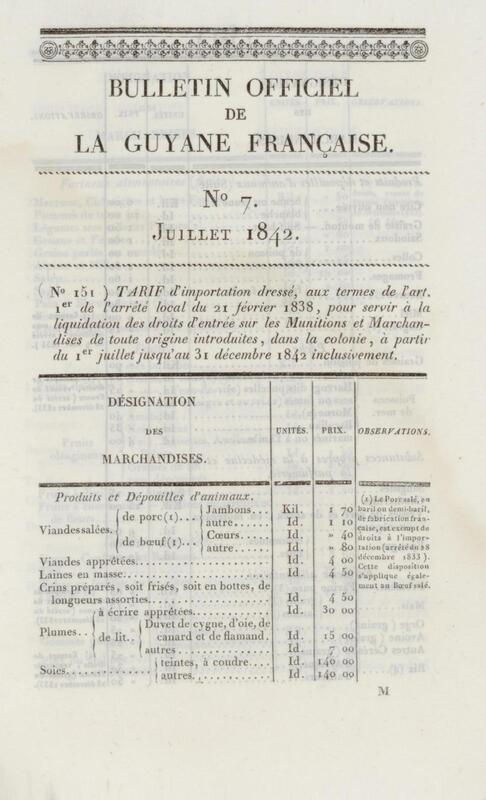 BULLETIN OFFICIEL
DE
LA GUYANE FRANÇAISE.
Nº 7.
JUILLET 1842.
(Nº 151) TARIF d'importation dressé, aux termes de l'art.
1er de l'arrêté local du 21 février 1838, pour servir à la
liquidation des droits d'entrée sur les Munitions et Marchan-
dises de toute origine introduites, dans la colonie, à partir
du 1er juillet jusqu'au 31 décembre 1842 inclusivement.
DÉSIGNATION
DES
MARCHANDISES.
UNITÉS.
PRIX.
OBSERVATIONS.
Produits et Dépouilles d'animaux.
Viandes salées. de porc(1)... Jambons... Kil. 1 70
autre.... Id. 1 10
de bœuf(1)... Cœurs.... Id. » 40
autre.... Id. » 80
Viandes apprêtées. Id. 4 00
Laines en masse. Id. 4 50
Crins préparés, soit frisés, soit en bottes, de
longueurs assorties. Id. 4 50
Plumes.. à écrire apprêtées. Id. 30 00
de lit.. Duvet de cygne, d'oie, de
canard et de flamand. Id. 15 00
autres. Id. 7 00
Soies. teintes, à coudre.... Id. 140 00
autres. Id. 140 00
(1) Le Porc salé, en
baril ou demi-baril,
de fabrication fran-
çaise, est exempt de
droits à l'impor-
tation (arrêté du 28
décembre 1833).
Cette disposition
s'applique égale-
ment au Bœuf salé.
M